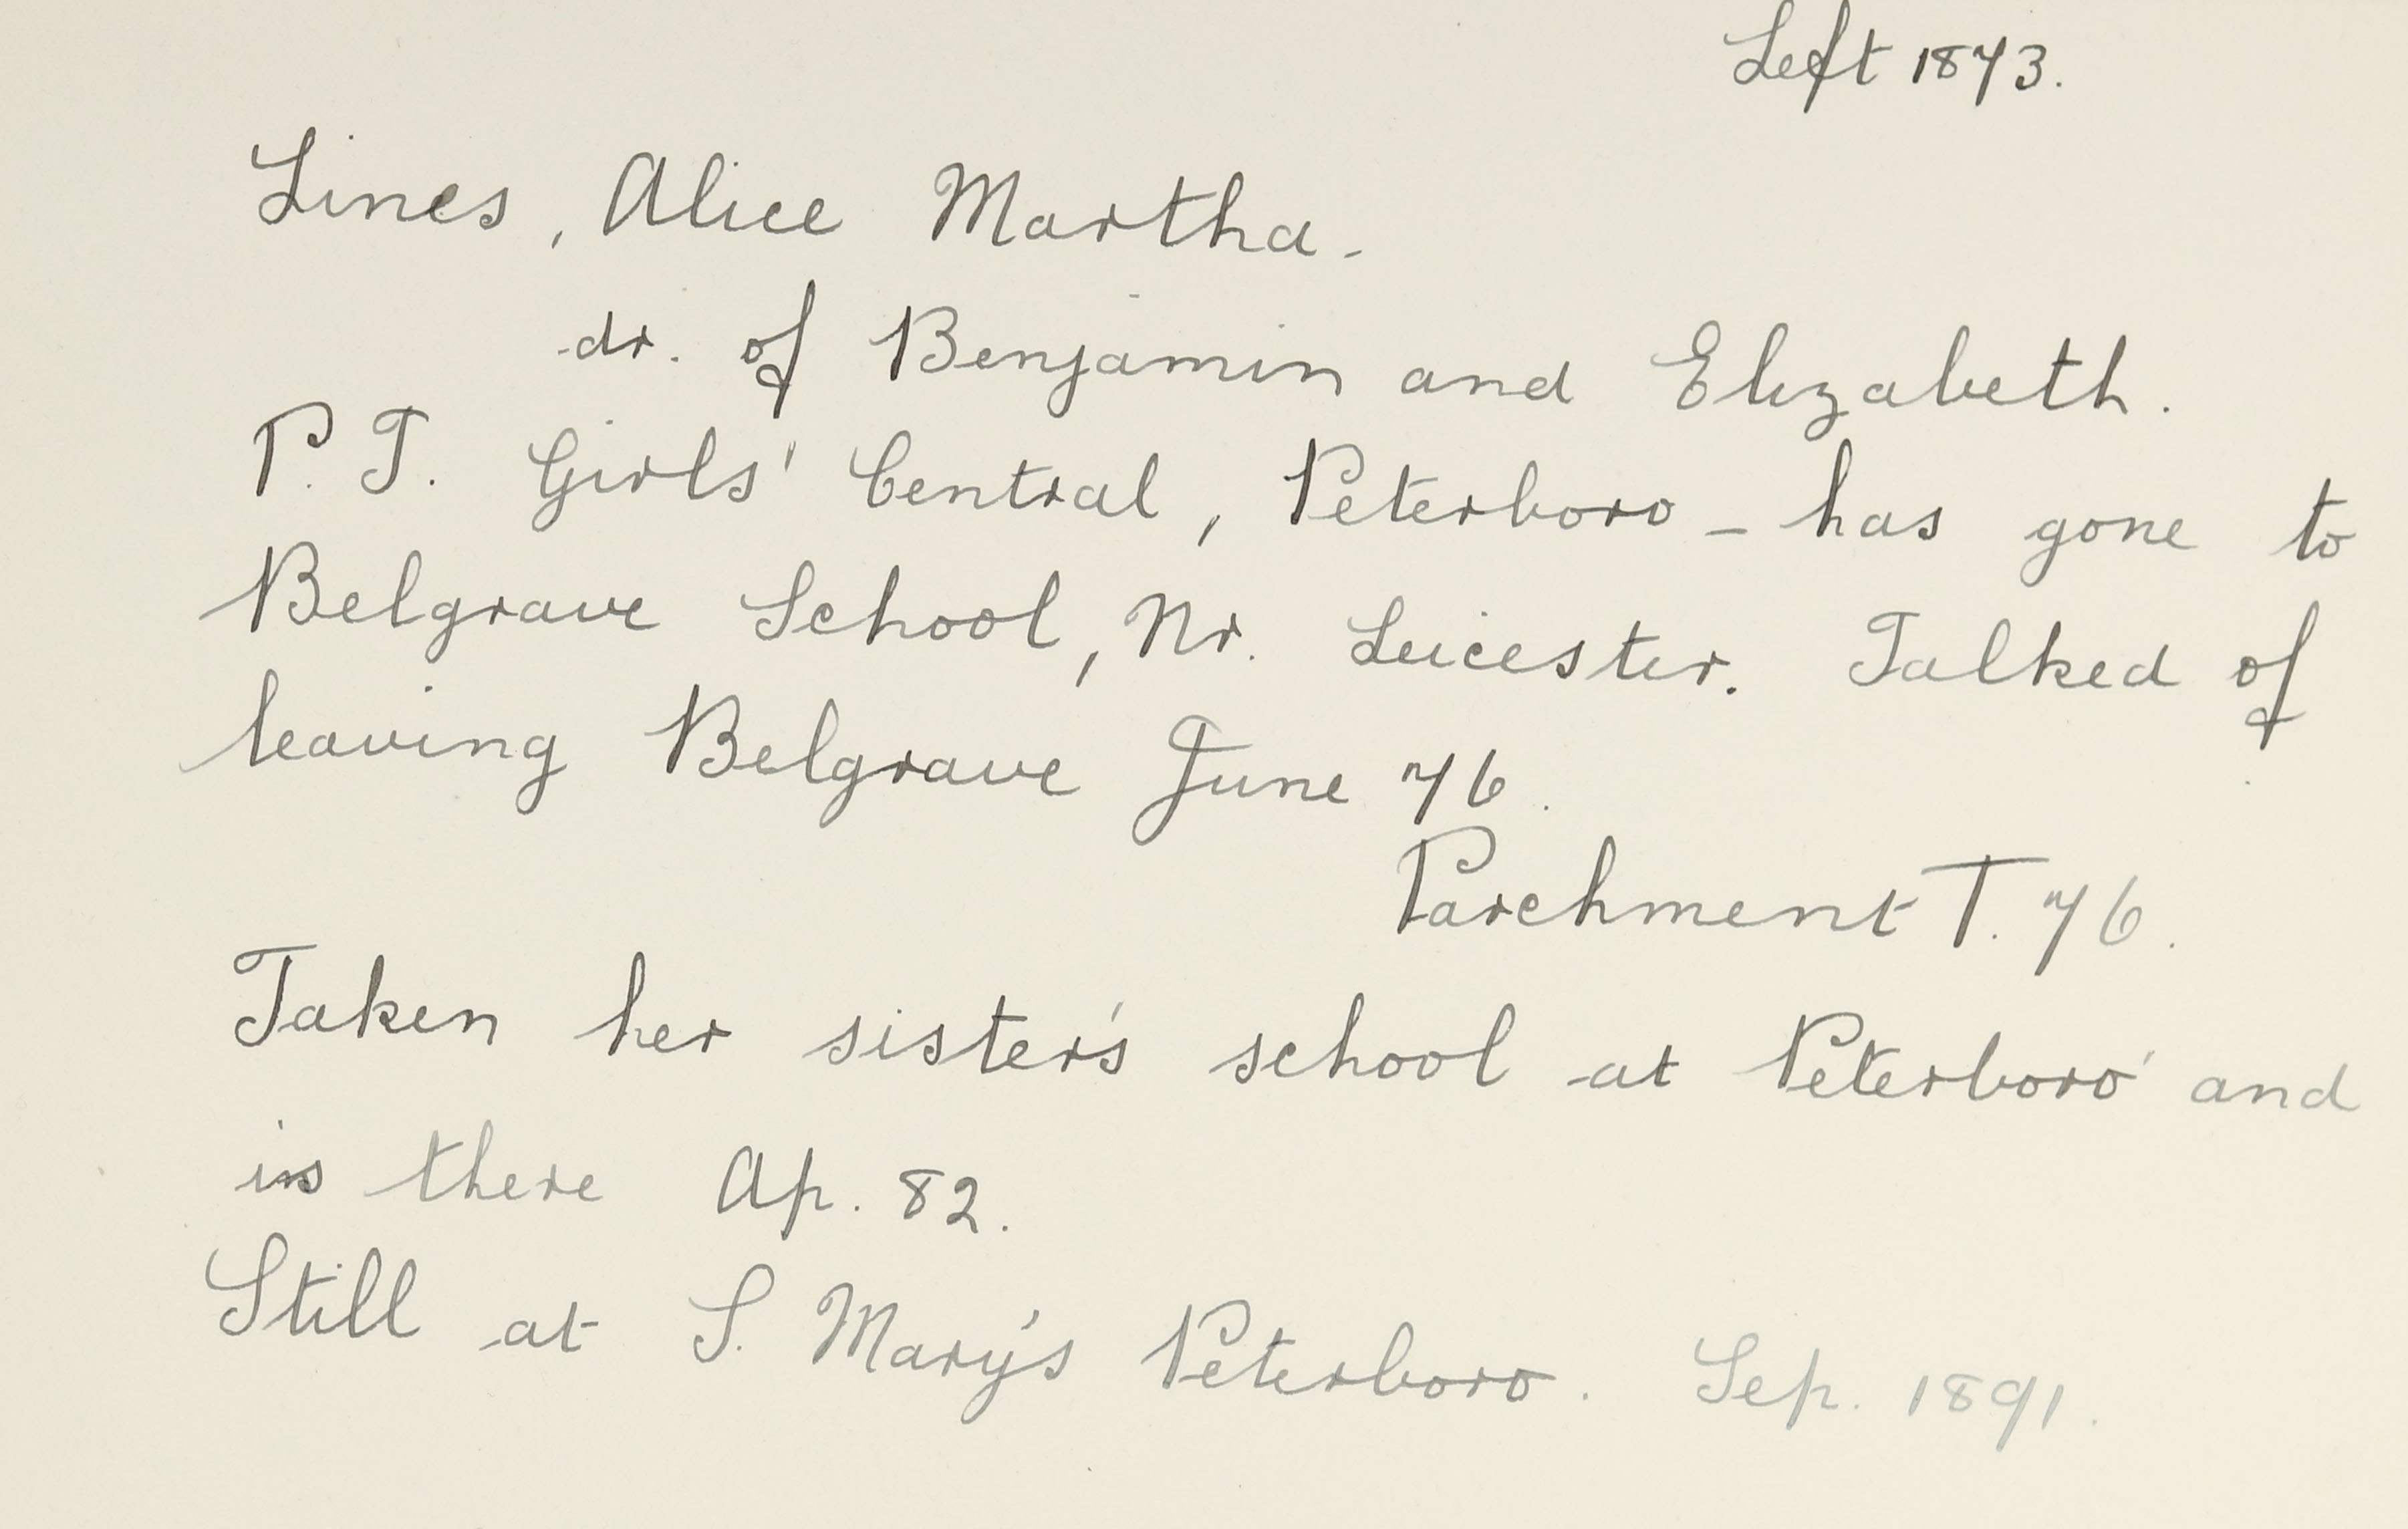 Left 1873.
Lines, Alice Martha.
dr. of Benjamin and Elizabeth.
P. T. Girls' Central, Peterboro - has gone to
Belgrave School, Nr. Leicester. Talked of
leaving Belgrave June 76.
Parchment T. 76.
Taken her sister's school at Peterboro' and
is there Ap. 82.
Still at S. Mary's Peterboro. Sep. 1891.